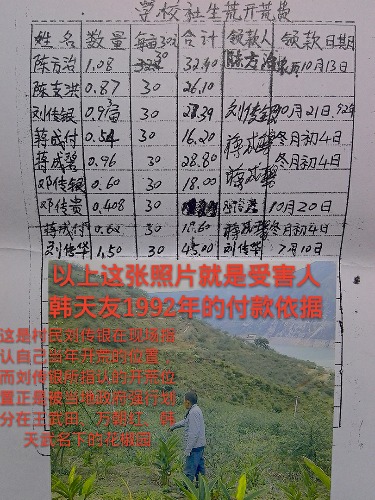 学校社生荒开荒费
姓名 数量 每亩30元 合计 领款人 领款日期
陈方治 1.08 30 32.40 陈方治 10月13日
陈支洪 0.87 30 26.10
刘传银 0.93 30 刘传银 10月21日.92年
蒋成付 0.54 30 16.20 蒋成碧 冬月初4日
蒋成碧 0.96 30 28.80 蒋成碧 冬月初4日
邓传银 0.60 30 18.00
邓传贵 0.408 30 10月20日
蒋成付 0.62 30 18.60 蒋成碧 冬月初4日
刘传华 1.50 30 45.00 刘传华 7月10日
以上这张照片就是受害人
韩天友1992年的付款依据
这是村民刘传银在现场指
认自己当年开荒的位置
而刘传银所指认的开荒位
置正是被当地政府强行划
分在王武田、万朝红、韩
天武名下的花椒园